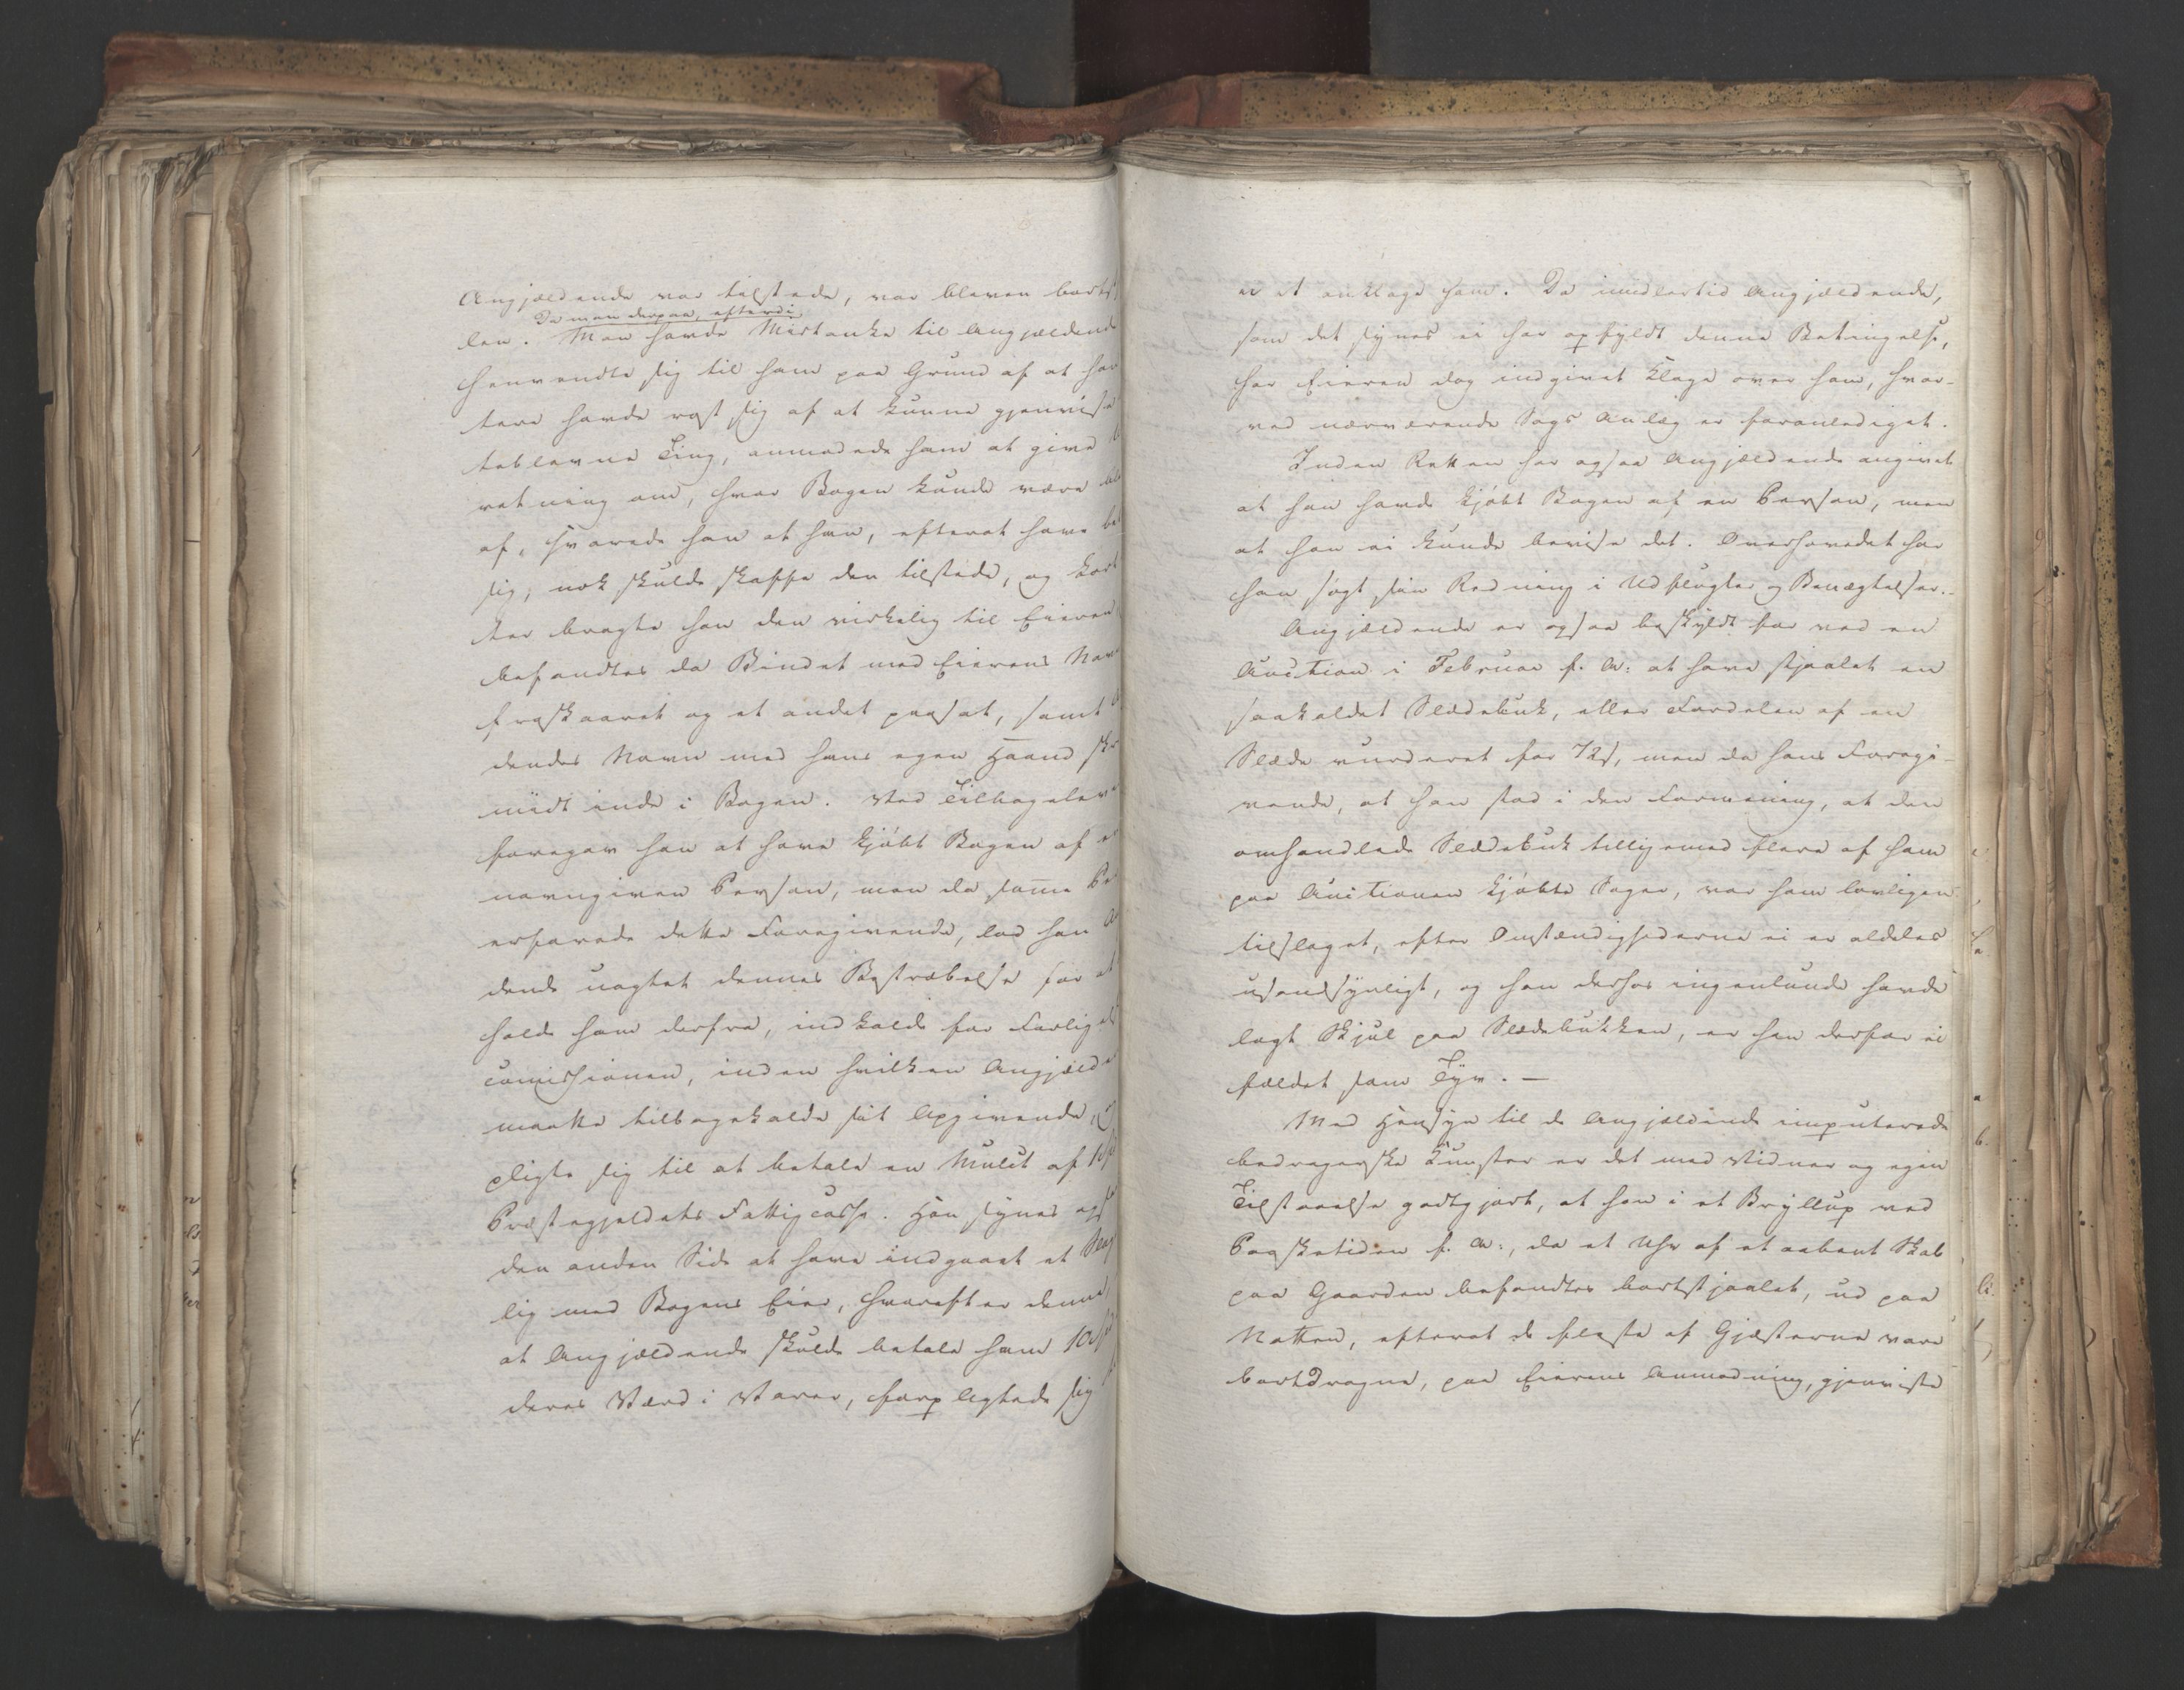 Angjældende var tilstede, var bleven bortst
Da man derpaa, efterdi
len. Man havde Mistanke til Angjældende
henvendte sig til ham paa Grund af at han
tere havde rost sig af at kunne gjenvise
teblevne Ting, anmodede ham at give
retning om, hvor Bogen kunde være
af, svarede han at han, efterat have be
sig, nok skulde skaffe den tilstede, og kort
ter bragte han den virkelig til Eieren
befandtes da Bindet med Eierens Navn
fraskaaret og et andet paasat, samt
dendes Navn med hans egen Haand skr
midt inde i Bogen. Ved Tilbagelev
foregav han at have kjøbt Bogen af en
navngiven Person, men da samme Pe
erfarede dette Foregivende, lod han An
dende uagtet dennes Bestræbelse for at
holde ham derfra, indkalde for Forligels
comissionen, inden hvilken Angjælde
maatte tilbagekalde sit Opgivende,
pligte sig til at betale en Mulct af 10
Præstegjeldets Fattigcasse. Han synes ogs
den anden Side at have indgaaet et
lig med Bogens Eier, hvorefter denne,
at Angjældende skulde betale ham 10
deres Værd i Varer, forpligtede sig
ei at anklage ham. Da imidlertid Angjældende,
som det synes ei har opfyldt denne Betingelse,
har Eieren dog indgivet Klage over ham, hvor-
ved nærværende Sags Anlæg er foranlediget.
Inden Retten har ogsaa Angjældende angivet
at han havde kjøbt Bogen af en Person, men
at han ei kunde bevise det. Overhovedet har
han søgt sin Redning i Udflugter og Benægtelser.-
Angjældende er ogsaa beskyldt for ved en
Auction i Februar f. A: at have stjaalet en
saakaldet Slædebuk, eller Fordelen af en
Slæde vurderet for 72 s, men da hans Foregi-
vende, at han stod i den Formening, at den
omhandlede Slædebuk tilligemed flere af ham
paa Auctionen kjøbte Sager, var ham lovligen
tilslaget, efter Omstændighederne ei er aldeles
usandsynligt, og han derhos ingenlunde havde
lagt Skjul paa Slædebukken, er han derfor ei
fældet som Tyv. —
Med Hensyn til de Angjældende imputerede
bedragerske Kunster er det med Vidner og egen
Tilstaaelse godtgjort, at han i et Bryllup ved
Paasketiden f. A:, da et Uhr af et aabent Skab
paa Gaarden befandtes bortstjaalet, ud paa
Natten, efterat de fleste af Gjæsterne vare
bortdragne, paa Eierens Anmodning, gjenviste